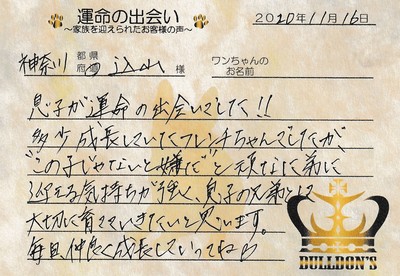 運命の出会い
～家族を迎えられたお客様の声～
2020年11月16日
神奈川 都道府県 込山 様
ワンちゃんの
お名前
息子が運命の出会いでした!!
多少成長していたフレンチちゃんでしたが、
"この子じゃないと嫌だ"と頑なに弟に
迎える気持ちが強く、息子の兄弟として
大切に育てていきたいと思います。
毎日、仲良く成長していってね
BULLDON'S